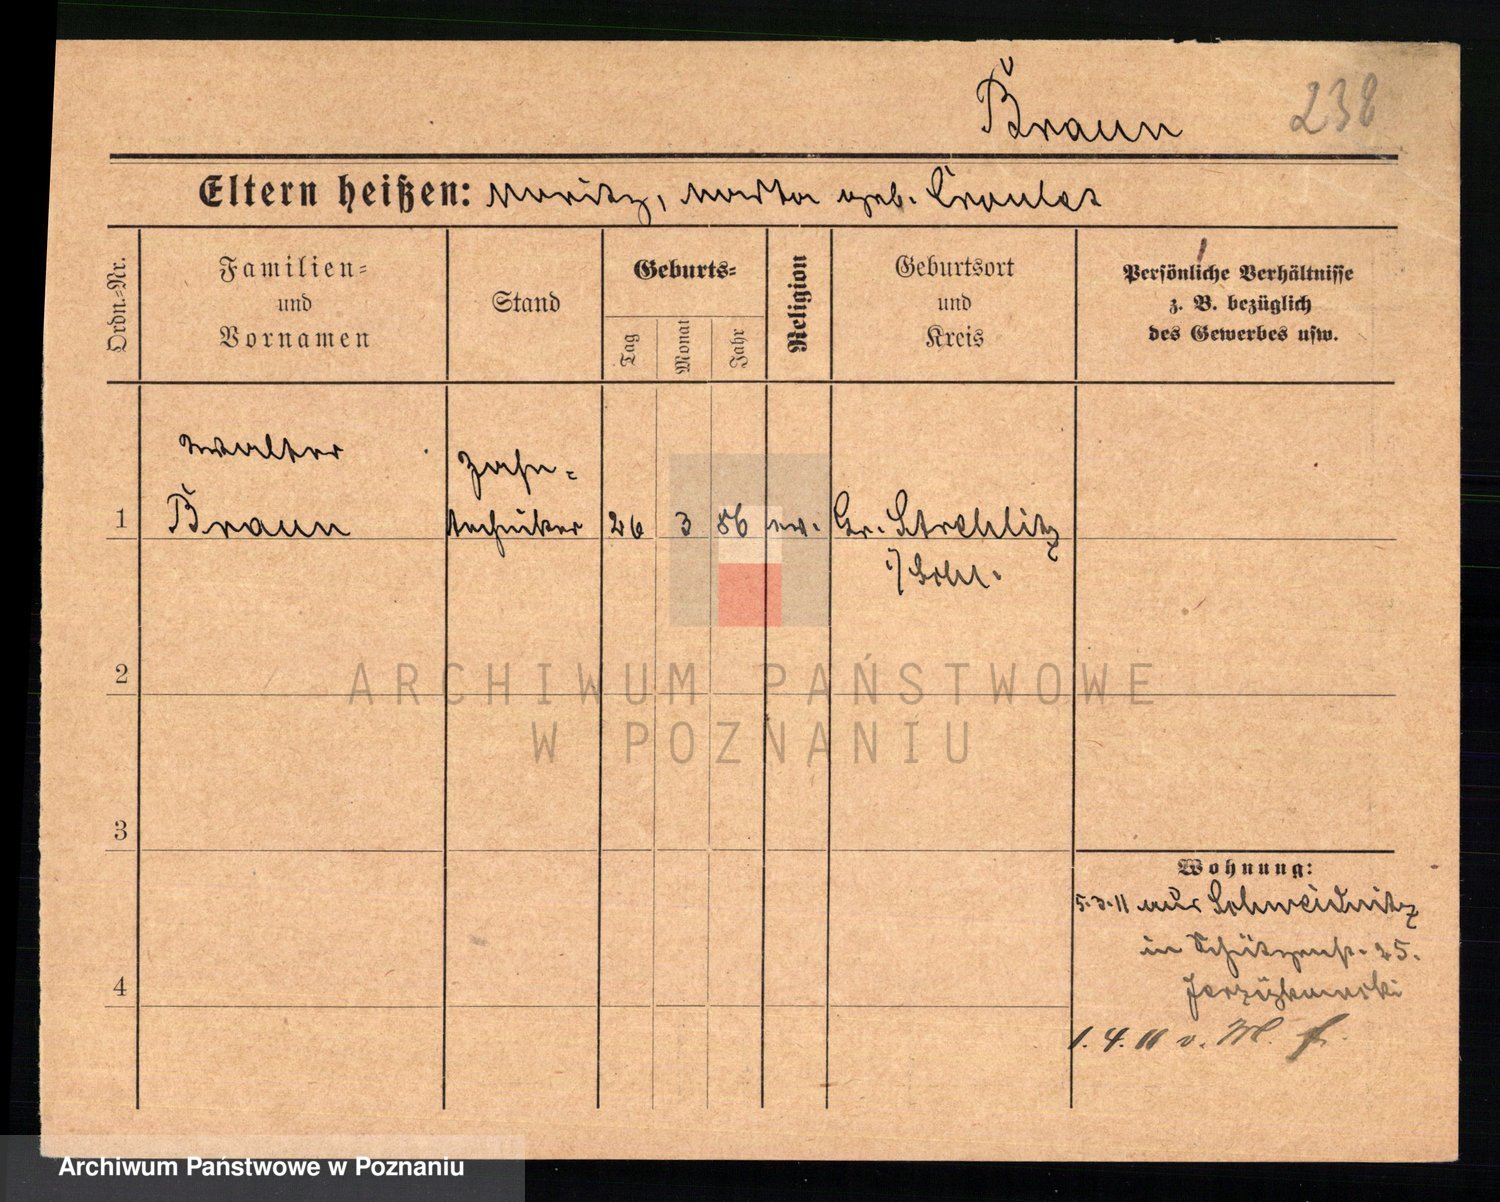 Braun 238
Eltern heißen: Moritz, Martha geb.
Ordn.-Nr.
Familien-
und
Vornamen
Stand
Geburts-
Tag
Monat
Jahr
Religion
Geburtsort
und
Kreis
Persönliche Verhältnisse
z. B. bezüglich
des Gewerbes usw.
Walter
Zahn-
1 Braun techniker 26 3 86 ev. Gr. Strehlitz
i/ Schl.
2
ARCHIWUM PAŃSTWOWE
W POZNANIU
3
Wohnung:
5.3.11 aus Schweidnitz
in Schützenstr. 25.
4
1.4.11 v. M.
Archiwum Państwowe w Poznaniu